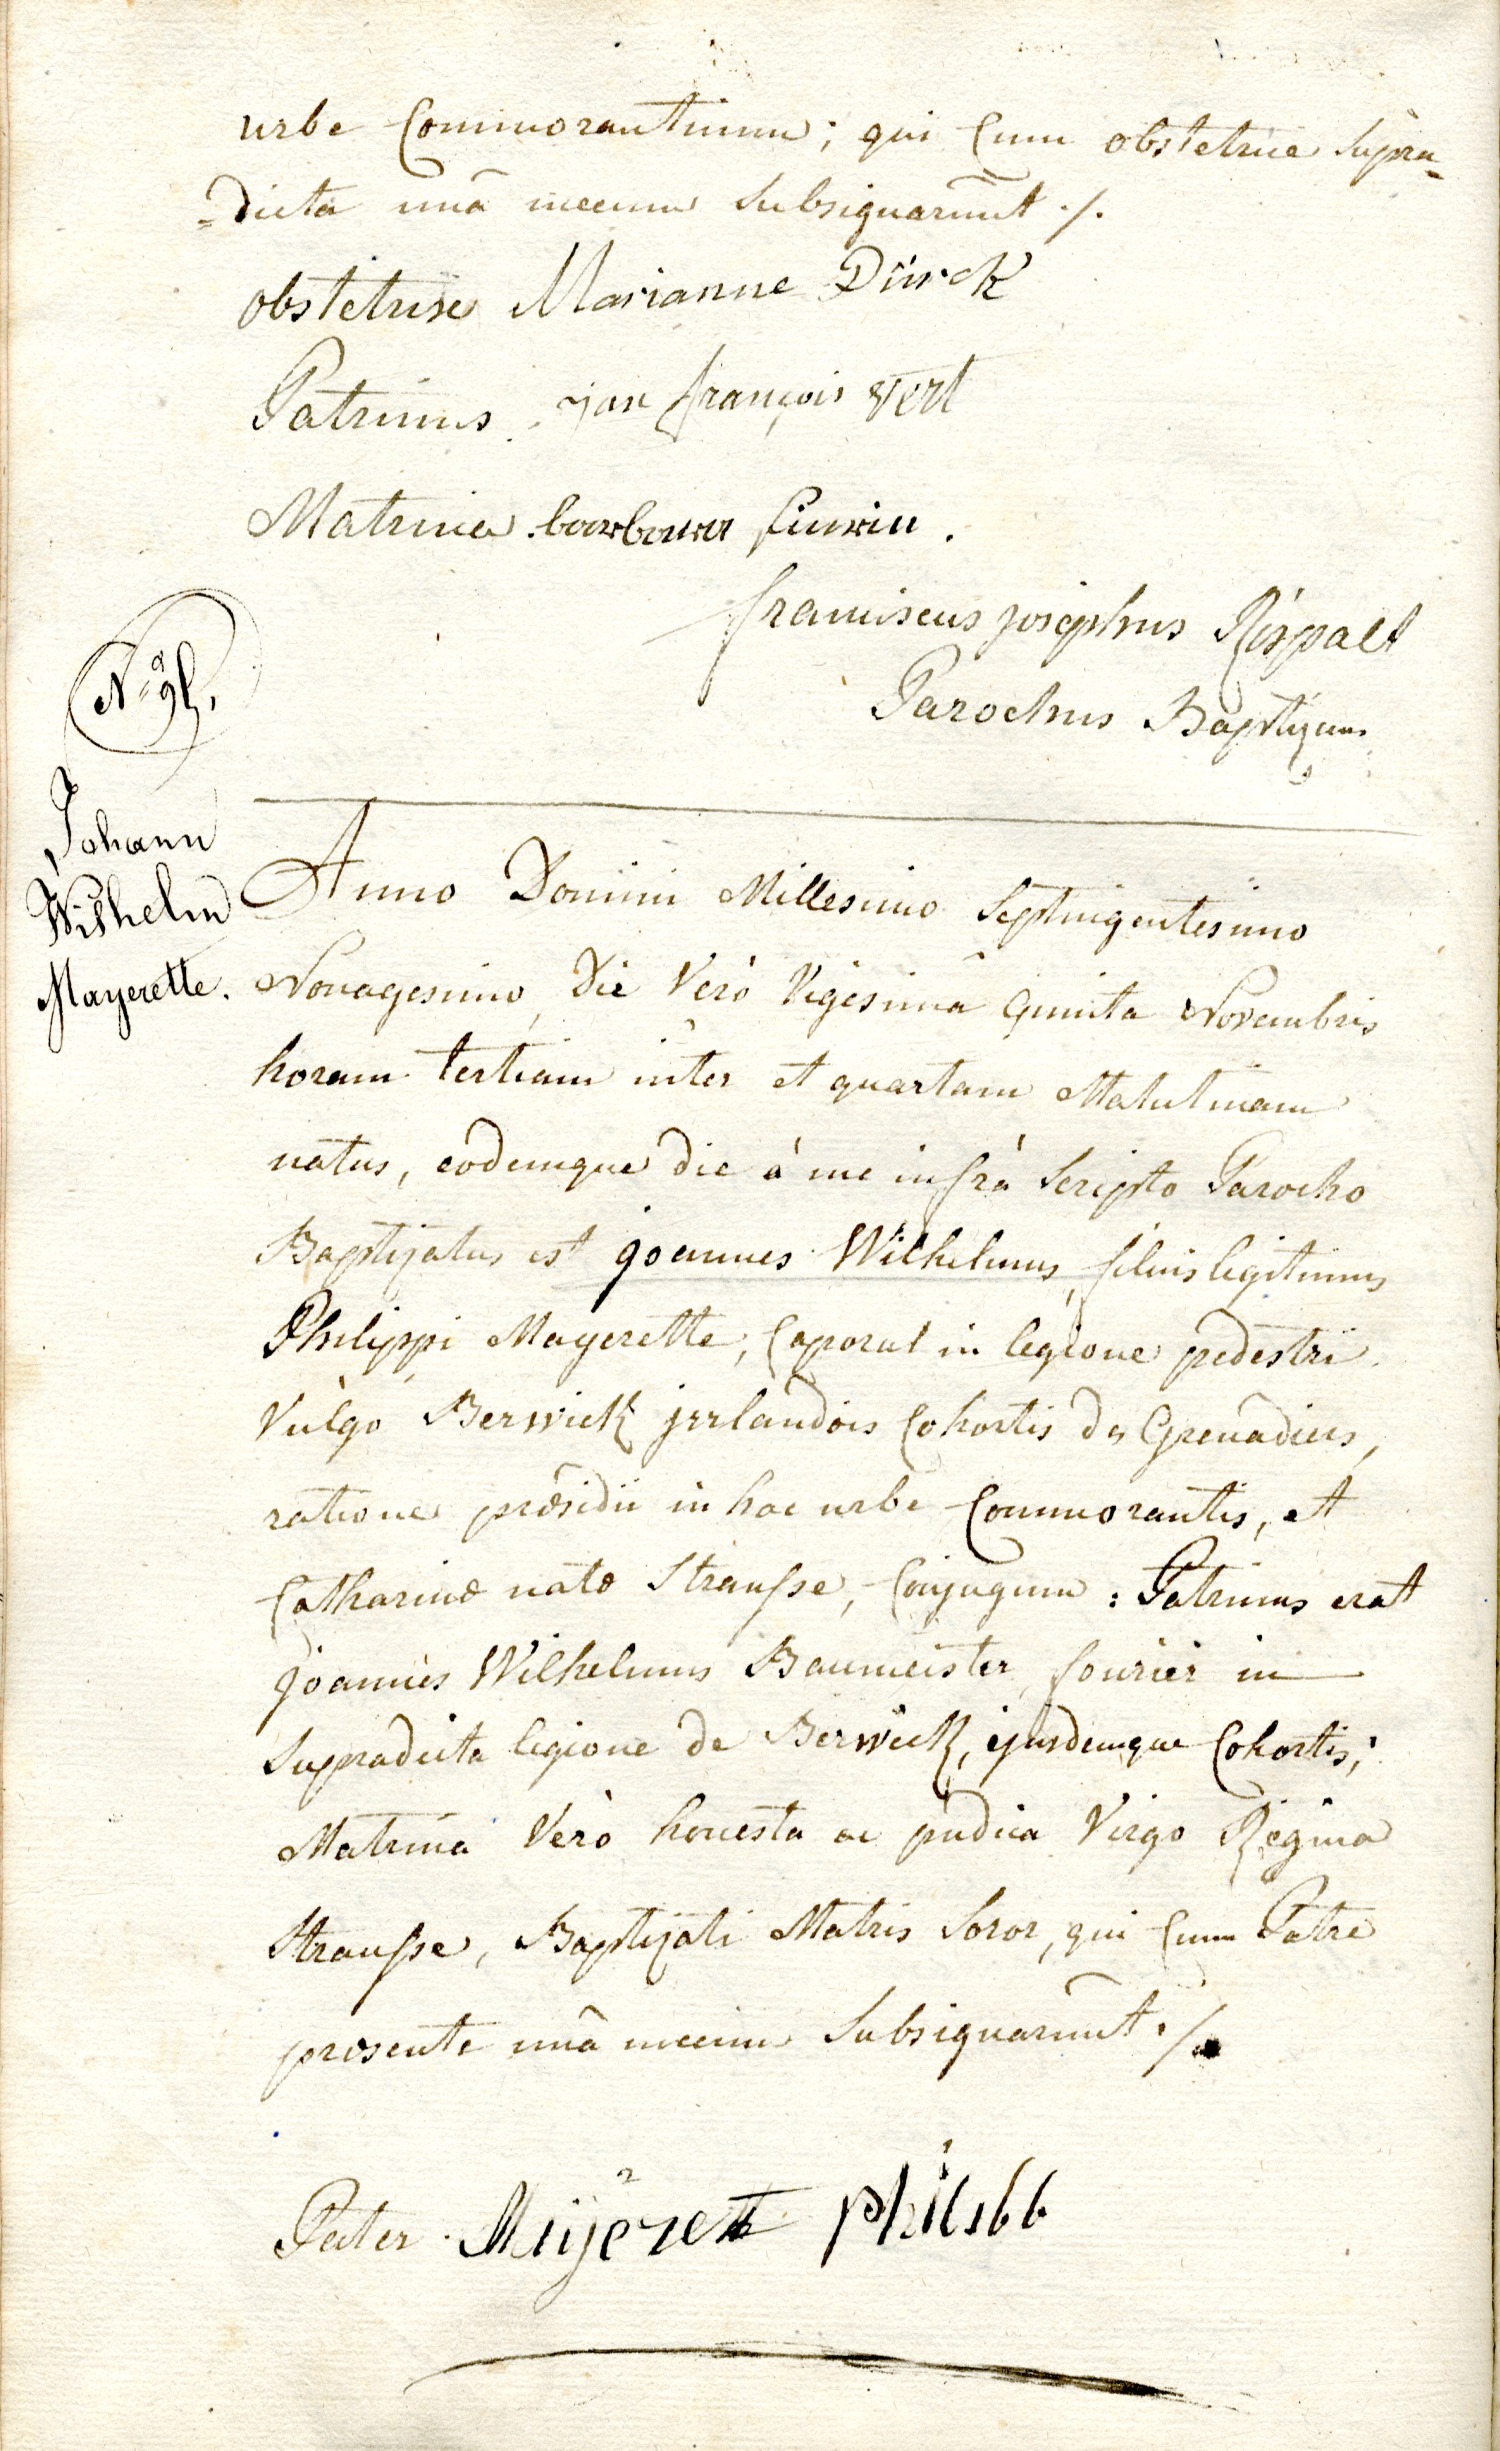 urbe Commorantium; qui Cum obstetrice supra=
=dicta unâ mecum subsignarunt ./.
obstetrix Marianne Dürck
Patrinus jan françois vert
Matrina barbara
franciscus josephus Rispalt
Parochus Baptizans
Johann
Wilhelm
Mayerette.
Anno Domini Millesimo Septingentesimo
Nonagesimo, Die Verò Vigesimâ Quinta Novembris
horam tertiam inter et quartam Matutinam
natus, eodemque die à me infrà Scripto Parocho
Baptizatus est joannes Wilhelmus, filius legitimus
Philippi Mayerette, Caporal in legione pedestri
Vulgò Berwick jrrlandois Cohortis des Grenadiers,
ratione præsidii in hac urbe Commorantis, et
Catharinæ natæ Strausse, Conjugum : Patrinus erat
joannes Wilhelmus Baumeister, fourier in
supradicta legione de Berwick, ejusdemque Cohortis;
Matrina Verò honesta ac pudica Virgo Regina
Strausse, Baptizati Matris Soror, qui Cum Patre
præsente unâ mecum Subsignarunt ./.
Pater Mijerett philibb